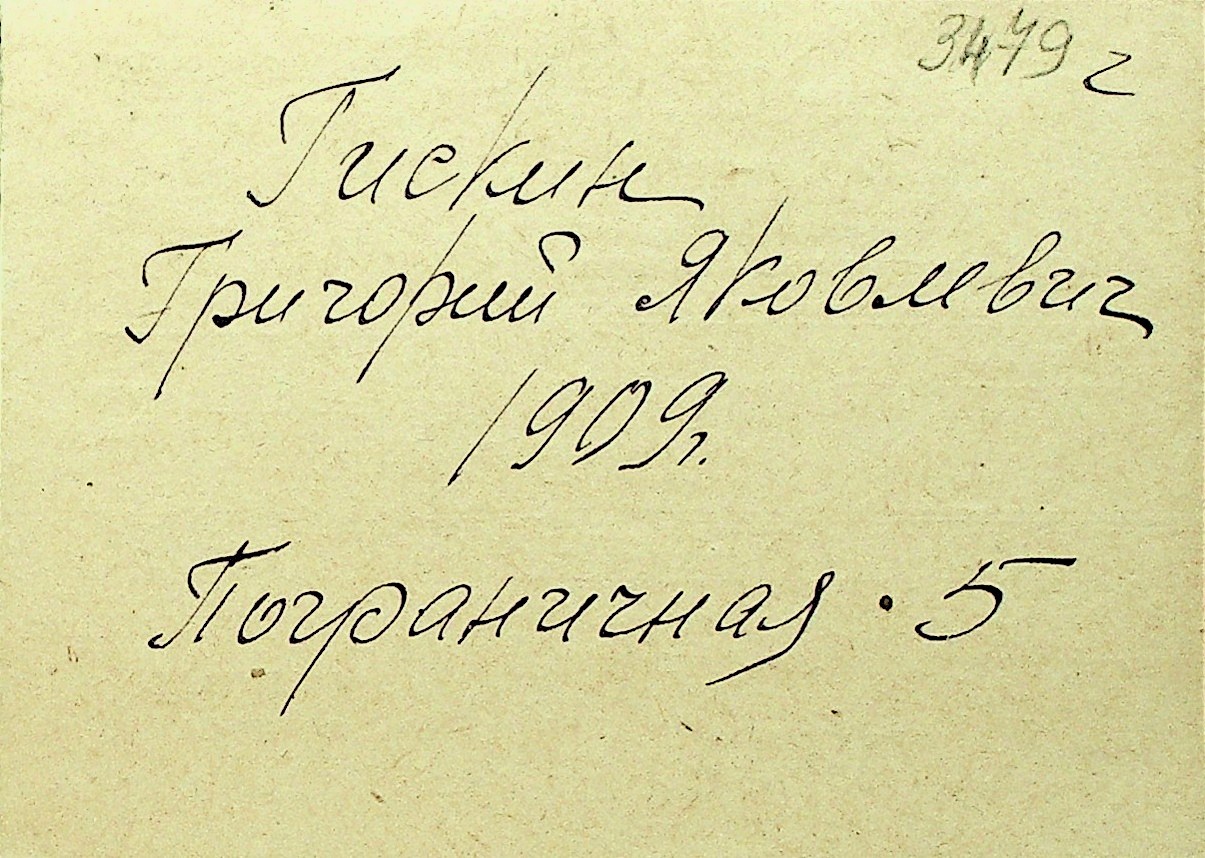 3479 г
Гискин
Григорий Яковлевич
1909г.
Пограничная 5